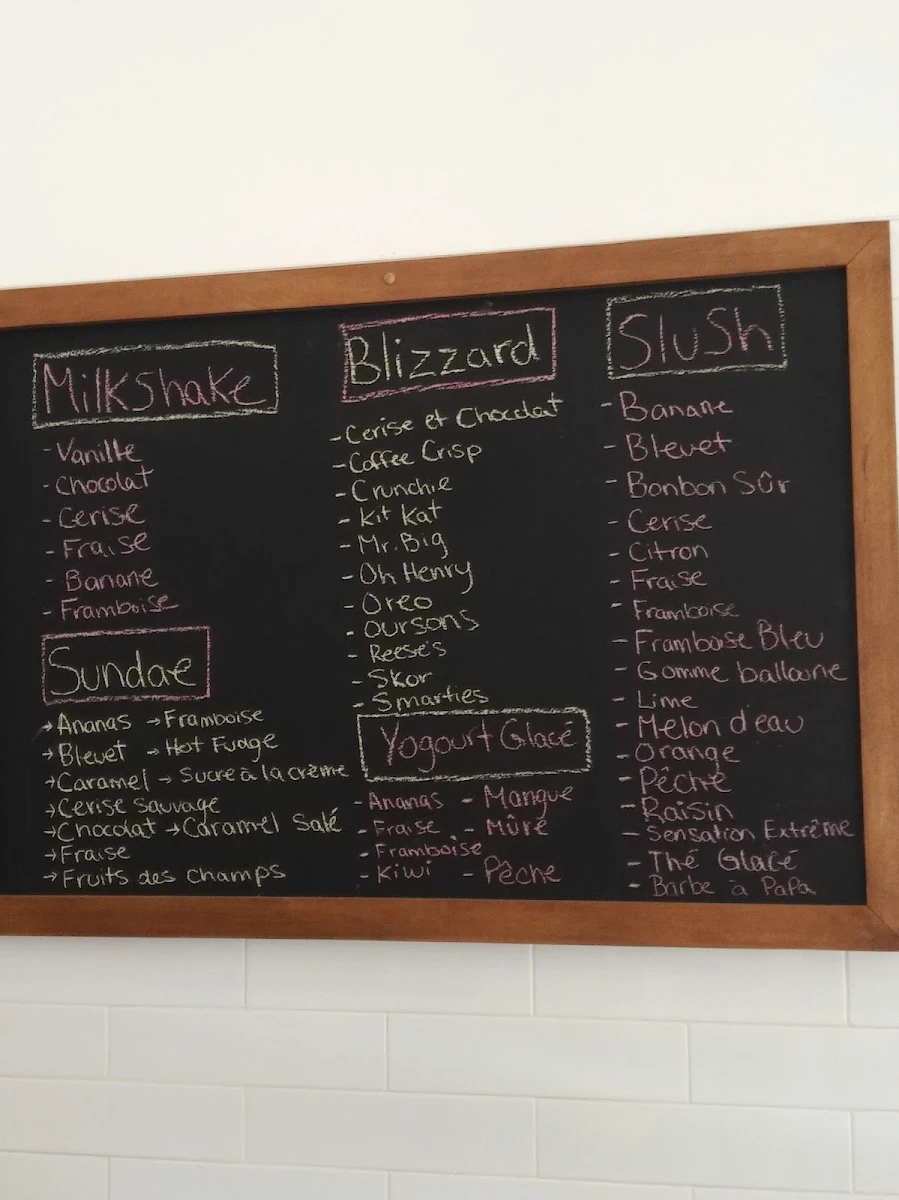 Milkshake
- Vanille
- Chocolat
- Cerise
- Fraise
- Banane
- Framboise
Sundae
→ Ananas → Framboise
→ Bleuet → Hot Fudge
→ Caramel → Sucre à la crème
→ Cerise Sauvage
→ Chocolat → Caramel Salé
→ Fraise
→ Fruits des champs
Blizzard
- Cerise et Chocolat
- Coffee Crisp
- Crunchie
- Kit Kat
- Mr. Big
- Oh Henry
- Oreo
- Oursons
- Reese's
- Skor
- Smarties
Yogourt Glacé
- Ananas - Mangue
- Fraise - Mûre
- Framboise
- Kiwi - Pêche
Slush
- Banane
- Bleuet
- Bonbon Sûr
- Cerise
- Citron
- Fraise
- Framboise
- Framboise Bleu
- Gomme balloune
- Lime
- Melon d'eau
- Orange
- Pêche
- Raisin
- Sensation Extrême
- Thé Glacé
- Barbe a Papa